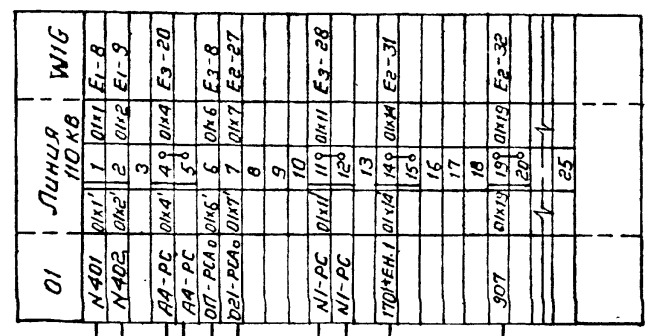 01 Линия 110 кВ W1G
N401 01x1' 1 01x1 E1-8
N402 01x2' 2 01x2 E1-9
3
A4-PC 01x4' 4 01x4 E3-20
A4-PC 5
017-PCA0 01x6' 6 01x6 E3-8
021-PCA0 01x7' 7 01x7 E2-27
8
9
10
N1-PC 01x11' 11 01x11 E3-28
N1-PC 12
13
1701*EH.1 01x14' 14 01x14 E2-31
15
16
17
18
907 01x19' 19 01x19 E2-32
20
25